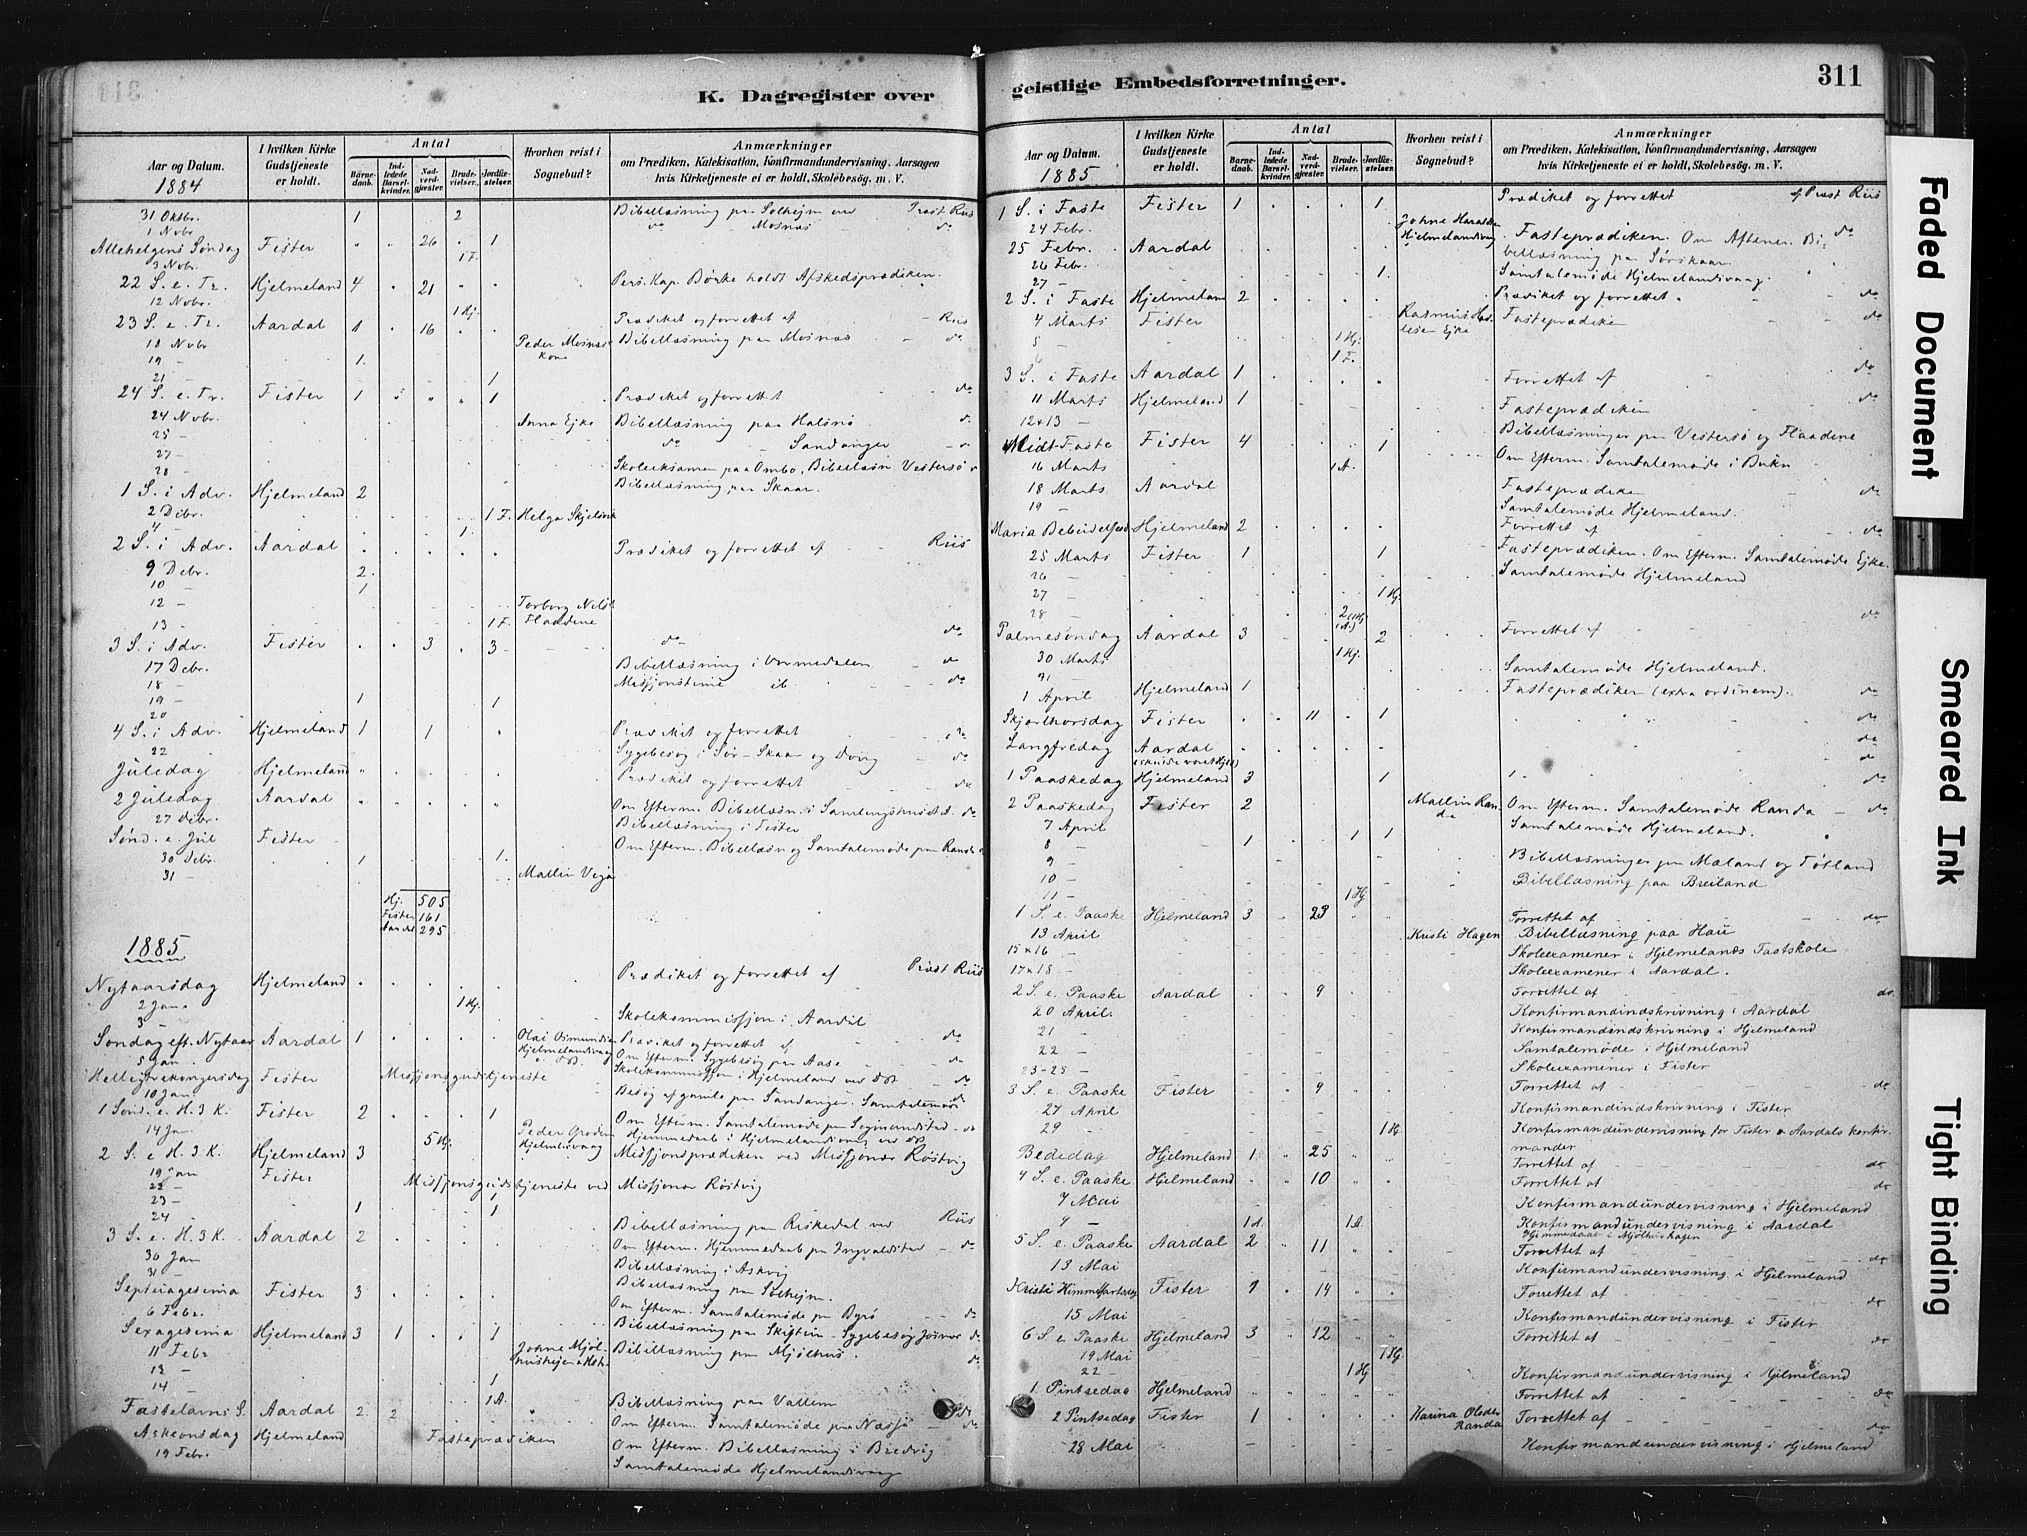 K. Dagregister over
Aar og Datum.
1884
I hvilken Kirke Gudstjeneste er holdt.
Antal
Barnedaab.
Indledede Barselkvinder.
Nadverdgjæster.
Brudevielser.
Jordfæstelser.
Hvorhen reist i Sognebud?
Anmærkninger
om Prædiken, Katekisation, Konfirmandundervisning, Aarsagen
hvis Kirketjeneste ei er holdt, Skolebesøg. m. V.
31 Oktbr. 1 2 Bibellæsning paa Solhejm ved Prost Riis
1 Nobr. do Mosnæs do
Allehelgens Søndag Fister 26 1
3 Nobr. 1 F.
22 S. e. Tr. Hjelmeland 4 21 Pers. Kap. Børke holdt Afskedsprædiken.
12 Nobr. 1 Hj.
23 S. e. Tr. Aardal 1 16 Prædiket og forrettet af Riis
18 Nobr Peder Mosnæs Kone Bibellæsning paa Mosnæs do
19 - 1.
21 - 1
24 S. e. Tr. Fister 1 1 Prædiket og forrettet do
24 Nobr. Anna Ejke Bibellæsning paa Halsnø
25 - do Sandanger
27 -
28 - Skoleeksamen paa Ombo, Bibellæsn Vestersø
1 S. i Adv. Hjelmeland 2 Bibellæsning paa Skaar.
2 Dcbr. 1 F. Helga
4 - 1.
2 S. i Adv. Aardal Prædiket og forrettet af Riis
9 Debr. 2.
10 - 1
12 - Torborg
13 - 1 F. Flaadene
3 S. i Adv. Fister 3 3 do do
17 Debr. Bibellæsning i Vormedalen do
18 - Misjonstime ib. do
19 - 1 1
20
4 S. i Adv. Hjelmeland 1 1 Prædiket og forrettet do
22 Sygebesøg i Sør-Skaar og do
Juledag Hjelmeland Prædiket og forrettet do
2 Juledag Aardal Om Efterm. Bibellæsn. i Samlingshuset do
27 Debr. Bibellæsning i Fister
Sønd. e. Jul Fister Om Efterm. Bibellæsn og Samtalemøde paa Randa
30 Debr. 1 1.
31 - Mallin Vega
Hj. 505
Fister 161
Aardal 295
1885
Nytaarsdag Hjelmeland Prædiket og forrettet af Prost Riis
2 Jan. 1 Hj.
3 - Skolekommissjon i Aardal
Søndag eft. Nytaar Aardal 1 Olai Osmundsen Hjelmelandsvaag Prædiket og forrettet af do
5 Jan Om Efterm. Sygebesøg paa Aase do
Helligtrekongersdag Fister Misjonsgudstjeneste Skolekommissjon i Hjelmeland ved do
10 Jan Besøg af gamle paa Sandanger. Samtalemøde
1 Sønd. e. H. 3 K. Fister 2 1 Om Efterm. Samtalemøde paa Sigmundstad do
14 Jan. 5 Hj. Peder Hjelmelsvaag Hjemmedaab i Hjelmelandsvaag
2 S. e H. 3 K. Hjelmeland 3 Missjonsprædiken ved Missjonær Røstvig
19 Jan Fister Missjonsgudstjeneste ved Missjonær Røstvig
22 -
23 - 1 1
24 - Bibellæsning paa Riskedal ved Riis
3 S. e. H. 3 K. Aardal 2 Om Efterm. Hjemmedaab paa Ingvaldstad do
30 Jan Bibellæsning i Askvig
31 - Bibellæsning paa Solhejm.
Septuagesima Fister 3 Om Efterm. Samtalemøde paa Byrø do
6 Febr. Bibellæsning paa Sygebesøg do
Sexagesima Hjelmeland 3 1 1
11 Febr Johne Bibellæsning paa Mjølhus. do
13 - 1
14 - 1 A. Bibellæsning paa Vallem
Fastelavns S. Aardal 2 2 Om Efterm. Samtalemøde paa Næsjø do
Askeonsdag Hjelmeland Fasteprædiken Om Efterm. Bibellæsning i Bredvig
19 Febr. Samtalemøde Hjelmelandsvaag
geistlige Embedsforretninger.
311
Aar og Datum.
1885
I hvilken Kirke Gudstjeneste er holdt.
Antal
Barnedaab.
Indledede Barselkvinder.
Nadverdgjæster.
Brudevielser.
Jordfæstelser.
Hvorhen reist i Sognebud?
Anmærkninger
om Prædiken, Katekisation, Konfirmandundervisning, Aarsagen
hvis Kirketjeneste ei er holdt, Skolebesøg. m. V.
1 S. i Faste Fister 1 1 Prædiket og forrettet af Prost Riis
24 Febr. Johne Hjelmelandsvaag
25 Febr. Aardal Fasteprædiken. Om Aftenen Bi- do
26 Febr. bellæsning paa Sørskaar.
27 - 1. Samtalemøde Hjelmelandsvaag.
2 S. i Faste Hjelmeland 2 Prædiket og forrettet do
4 Marts Fister Rasmus Ejke Fasteprædiken do
5 - 1 Hj.
6 1 F.
3 S. i Faste Aardal 1 Forrettet af do
11 Marts Hjelmeland 1 Fasteprædiken do
12 & 13 - Bibellæsninger paa Vestersø og Flaadene
Midt-Faste Fister 4 1 Om Efterm. Samtalemøde i Bukn
16 Marts 1 A.
18 Marts Aardal Fasteprædiken do
19 - Samtalemøde Hjelmeland.
Maria Bebudelsesd. Hjelmeland 2 Forrettet af do
25 Marts Fister 1 1 Fasteprædiken. Om Efterm. Samtalemøde Ejke
26 - Samtalemøde Hjelmeland
27 - 1 Hj
28 - 2 (1 Hj 1 A.) do
Palmesøndag Aardal 3 2 Forrettet af
30 Marts 1 Hj.
31 Samtalemøde Hjelmeland.
1 April Hjelmeland 1 Fasteprædiken (extra ordinem). do
Skjærthorsdag Fister 11 1 do
Langfredag Aardal do
1 Paaskedag Hjelmeland 3 1 do
2 Paaskedag Fister 2 Mallin Randa Om Efterm. Samtalemøde Randa do
7 April Samtalemøde Hjelmeland.
8 - 1 1 1
9 - Bibellæsninger paa Mæland og Tøtland
10 - Bibellæsning paa Breiland
11 - 1 Hj
1 S. e. Paaske Hjelmeland 3 23 Forrettet af do
13 April Kristi Hagen Bibellæsning paa Hau
15 & 16 - Skoleexamener i Hjelmelands Fastskole
17 & 18 - Skoleexamener i Aardal.
2 S. e. Paaske Aardal 9 Forrettet af do.
20 April. Konfirmandindskrivning i Aardal
21 - Konfirmandindskrivning i Hjelmeland
22 - Samtalemøde i Hjelmeland
23-25 - Skoleexamener i Fister
3 S. e. Paaske Fister 9 Forrettet af do
27 April Konfirmandindskrivning i Fister
29 - 1 Hj Konfirmandundervisning for Fister & Aardals Konfir-
mander
Bededag Hjelmeland 1 25 Forrettet af do
4 S. e. Paaske Hjelmeland 10 Forrettet af do
7 Mai Konfirmandundervisning i Hjelmeland
9 - 1 A. 1 A. Konfirmandundervisning i Aardal
Hjemmedaab i Mjølhushagen
5 S. e. Paaske Aardal 2 11 Forrettet af do
13 Mai Konfirmandundervisning i Hjelmeland
Kristi Himmelfartsdag Fister 1 14 Forrettet af do
15 Mai Konfirmandundervisning i Fister
6 S. e. Paaske Hjelmeland 3 12 Forrettet af do
19 Mai 1 Hj.
22 - 1 Hj Konfirmandundervisning i Hjelmeland
1. Pintsedag Hjelmeland Forrettet af do
2 Pintsedag Fister 1 Karina Olsdtr Randa Forrettet af do
28 Mai Konfirmandundervisning i Hjelmeland
Faded Document
Smeared Ink
Tight Binding